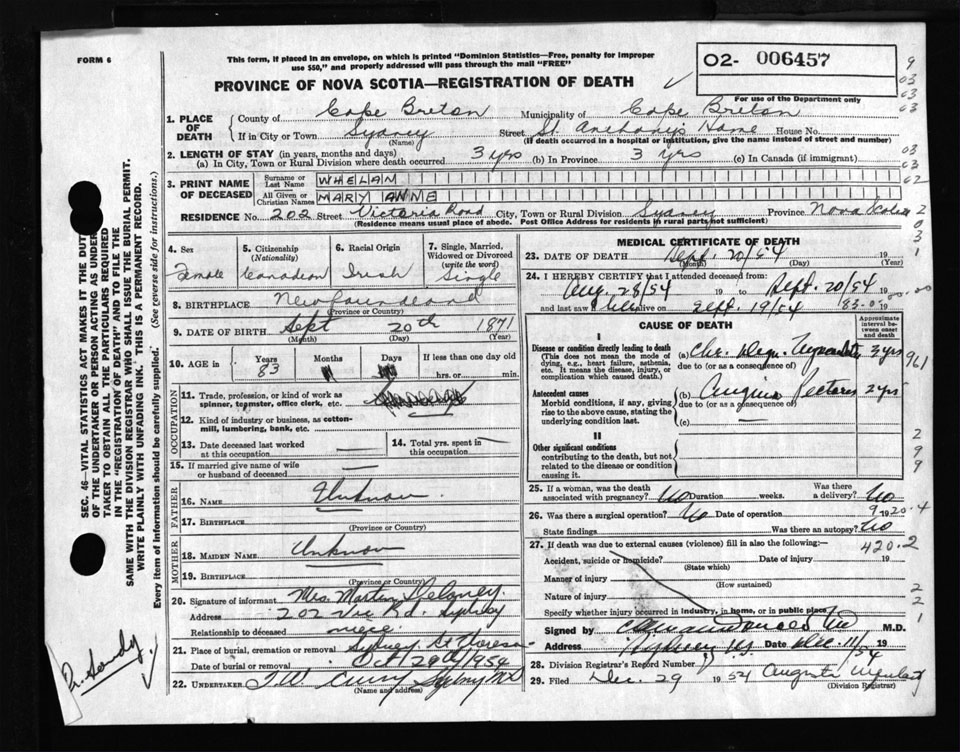 FORM 6
This form, if placed in an envelope, on which is printed "Dominion Statistics—Free, penalty for improper
use $50," and properly addressed will pass through the mail "FREE"
PROVINCE OF NOVA SCOTIA—REGISTRATION OF DEATH
02- 006457
For use of the Department only
1. PLACE OF DEATH
County of Cape Breton Municipality of Cape Breton
If in City or Town Sydney Street St. Anthony's Home House No.
(Name) (If death occurred in a hospital or institution, give the name instead of street and number)
2. LENGTH OF STAY (in years, months and days)
(a) In City, Town or Rural Division where death occurred 3 yrs (b) In Province 3 yrs (c) In Canada (if immigrant)
3. PRINT NAME OF DECEASED
Surname or Last Name WHELAN
All Given or Christian Names MARY ANNE
RESIDENCE No. 202 Street Victoria Road City, Town or Rural Division Sydney Province Nova Scotia
(Residence means usual place of abode. Post Office Address for residents in rural parts not sufficient)
4. Sex Female
5. Citizenship (Nationality) Canadian
6. Racial Origin Irish
7. Single, Married, Widowed or Divorced (write the word) Single
8. BIRTHPLACE Newfoundland
(Province or Country)
9. DATE OF BIRTH Sept 20th 1871
(Month) (Day) (Year)
10. AGE in Years 83 Months Days If less than one day old
hrs. or min.
OCCUPATION
11. Trade, profession, or kind of work as spinner, teamster, office clerk, etc.
12. Kind of industry or business, as cotton-mill, lumbering, bank, etc.
13. Date deceased last worked at this occupation
14. Total yrs. spent in this occupation
15. If married give name of wife or husband of deceased
FATHER
16. NAME Unknown
17. BIRTHPLACE
(Province or Country)
MOTHER
18. MAIDEN NAME Unknown
19. BIRTHPLACE
(Province or Country)
20. Signature of informant Mrs. Martin Delaney
Address 202 Vic Rd. Sydney
Relationship to deceased niece
21. Place of burial, cremation or removal Sydney
Date of burial or removal 1954
22. UNDERTAKER T.W. Curry Sydney NS
(Name and address)
MEDICAL CERTIFICATE OF DEATH
23. DATE OF DEATH Sept. 20/54 19
(Month) (Day) (Year)
24. I HEREBY CERTIFY that I attended deceased from:
Aug. 28/54 19 to Sept. 20/54 19
and last saw alive on Sept. 19/54
CAUSE OF DEATH
Approximate interval between onset and death
I
Disease or condition directly leading to death
(This does not mean the mode of dying, e.g., heart failure, asthenia, etc. It means the disease, injury, or complication which caused death.)
(a) Chr. Degn. 3 yrs
due to (or as a consequence of)
Antecedent causes
Morbid conditions, if any, giving rise to the above cause, stating the underlying condition last.
(b) Angina Pectoris 2 yrs
due to (or as a consequence of)
(c)
II
Other significant conditions
contributing to the death, but not related to the disease or condition causing it.
25. If a woman, was the death associated with pregnancy? No Duration weeks. Was there a delivery? No
26. Was there a surgical operation? No Date of operation 19
State findings Was there an autopsy? No
27. If death was due to external causes (violence) fill in also the following:— 420.2
Accident, suicide or homicide? Date of injury 19
(State which)
Manner of injury
(How sustained)
Nature of injury
Specify whether injury occurred in industry, in home, or in public place.
Signed by M.D.
Address Date Dec. 11/54 19
28. Division Registrar's Record Number
29. Filed Dec. 29 1954
(Division Registrar)
SEC. 46—VITAL STATISTICS ACT MAKES IT THE DUTY
OF THE UNDERTAKER OR PERSON ACTING AS UNDER
TAKER TO OBTAIN ALL THE PARTICULARS REQUIRED
IN THE "REGISTRATION OF DEATH" AND TO FILE THE
SAME WITH THE DIVISION REGISTRAR WHO SHALL ISSUE THE BURIAL PERMIT.
WRITE PLAINLY WITH UNFADING INK. THIS IS A PERMANENT RECORD.
Every item of information should be carefully supplied. (See reverse side for instructions.)